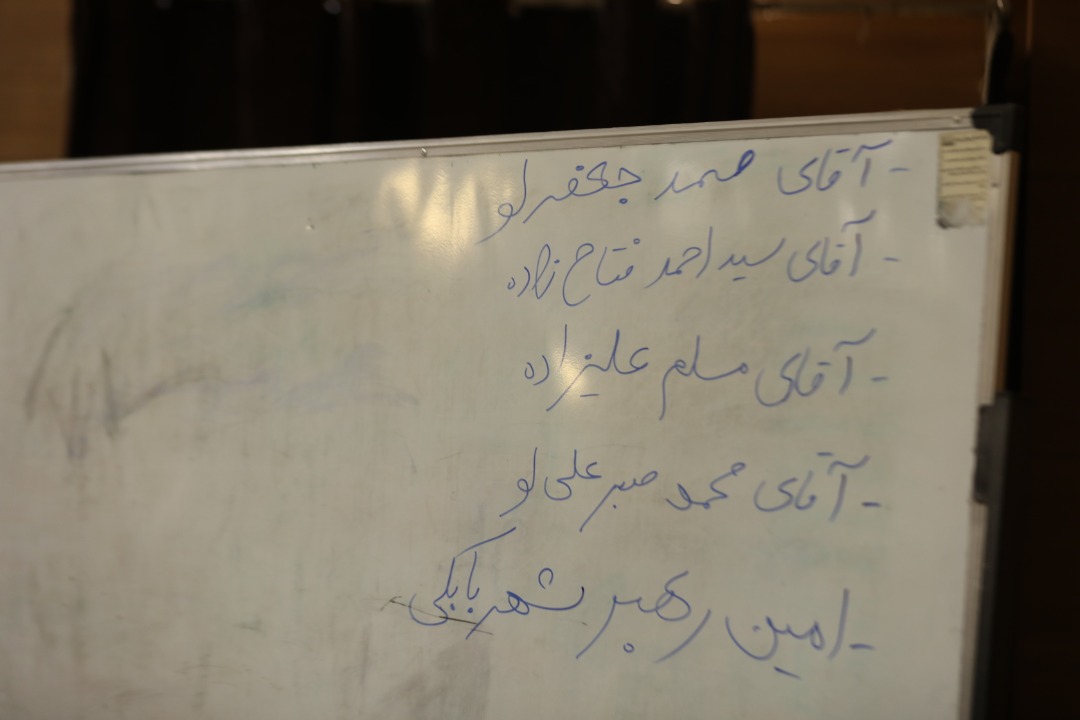 - آقای صمد جعفرلو
- آقای سید احمد فتاح زاده
- آقای مسلم علیزاده
- آقای محمد صبر علی لو
- امین رهبر شهربابکی